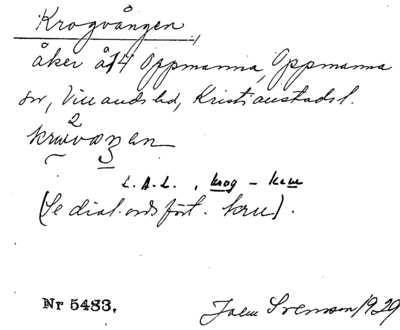 Krogvången
åker å 14 Oppmanna, Oppmanna
sn, Villands hd, Kristianstads l.
2
L.A.L., krog - kru
(Se dial.ordsfört. kru).
Nr 5483. Svensson 1929